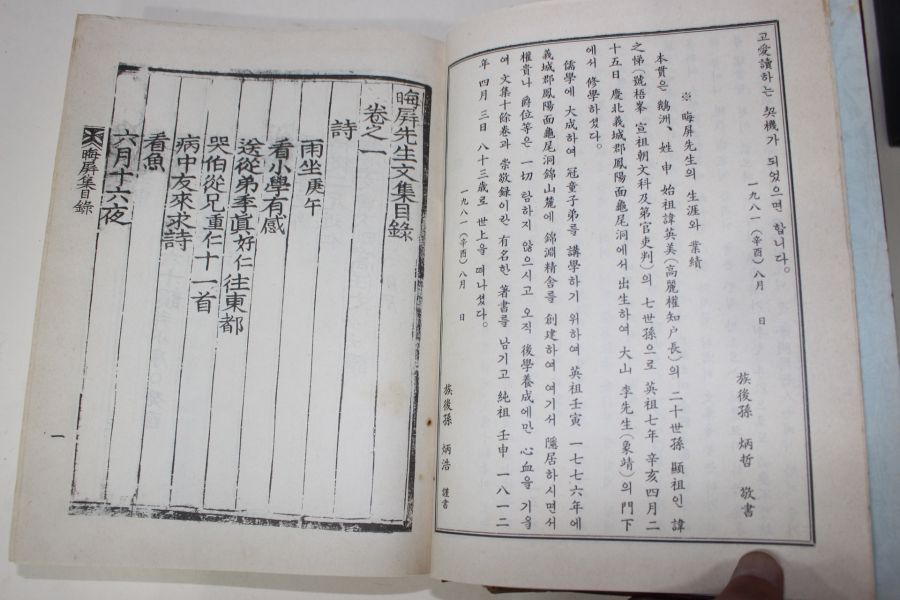 고 愛讀하는 契機가 되었으면 합니다。
一九八一(辛酉)八月 日
族後孫 炳哲 敬書
※ 晦屛先生의 生涯와 業績
本貫은 鵝洲、姓 申 始祖諱英美(高麗權知户長)의 二十世孫 顯祖인 諱
之悌(號梧峯 宣祖朝文科及第官吏判)의 七世孫으로 英祖七年 辛亥四月二
十五日 慶北義城郡鳳陽面龜尾洞에서 出生하여 大山 李先生(象靖)의 門下
에서 修學하셨다。
儒學에 大成하여 冠童子弟를 講學하기 위하여 英祖壬寅 一七七六年에
義城郡鳳陽面龜尾洞錦山麓에 錦淵精舍를 創建하여 여기서 隱居하시면서
權貴나 爵位等은 一切 탐하지 않으시고 오직 後學養成에만 心血을 기울
여 文集十餘卷과 崇敬録이란 有名한 著書를 남기고 純祖 壬申 一八一二
年 四月 三日 八十三歲로 世上을 떠나셨다。
一九八一(辛酉)八月 日
族後孫 炳浩 謹書
晦屛先生文集目錄
卷之一
詩
雨坐庚午
看小學有感
送從弟季眞好仁往東都
哭伯從兄重仁十一首
病中友來求詩
看魚
六月十六夜
晦屛集目錄
一